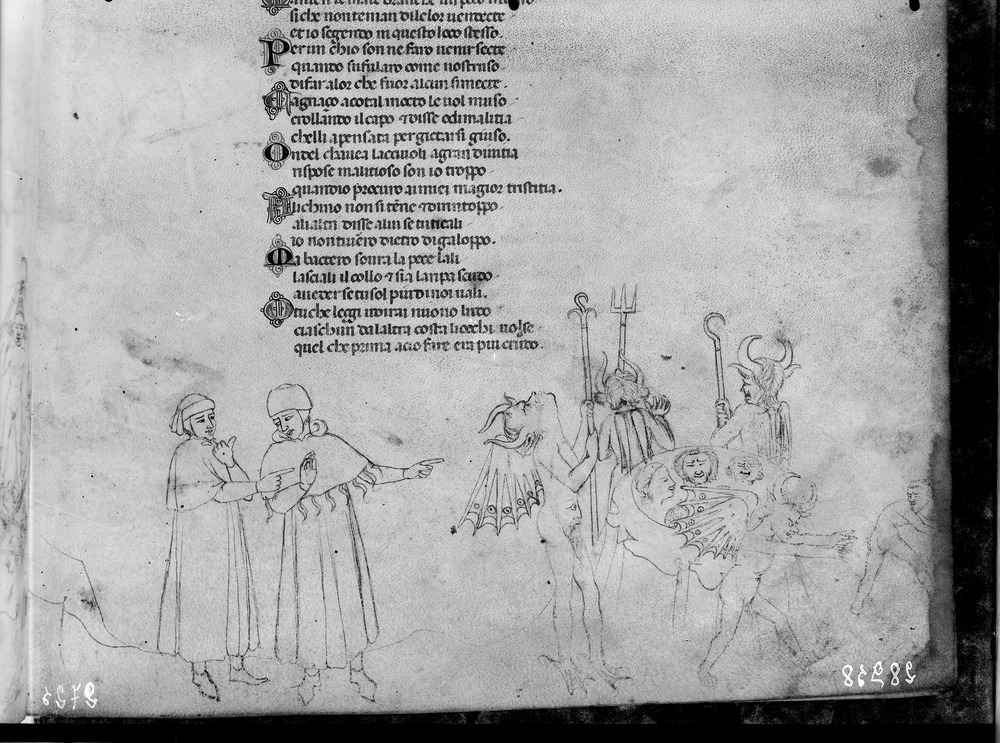 si che non teman di lelor uendecte
et io segendo in questo loco stesso.
Per un chio son ne faro uenir secte
quando sufularo come nostruso
di far alor che fuor alcun si mecte.
Cagnaço acotal mocto leuol muso
crollando il capo 7 disse odi malitia
chelli a pensata per gictarsi giuso.
Ondel chauea laccიuoli a gran diuitia
rispose malitioso son io troppo
quandio procuro amiei magior tristitia.
Alichino non si tēne 7 di rintoppo
ali altri disse alui se tu ti cali
io non ti uerro dietro di galoppo.
Ma bactero soura la pece lali
lasciali il collo 7 sia la ripa scudo
a ueder se tu sol piu di noi uali.
O tu che leggi udirai nuouo ludo
ciaschun da laltra costa liocchi uolse
quel che prima acio fare era piu crudo.